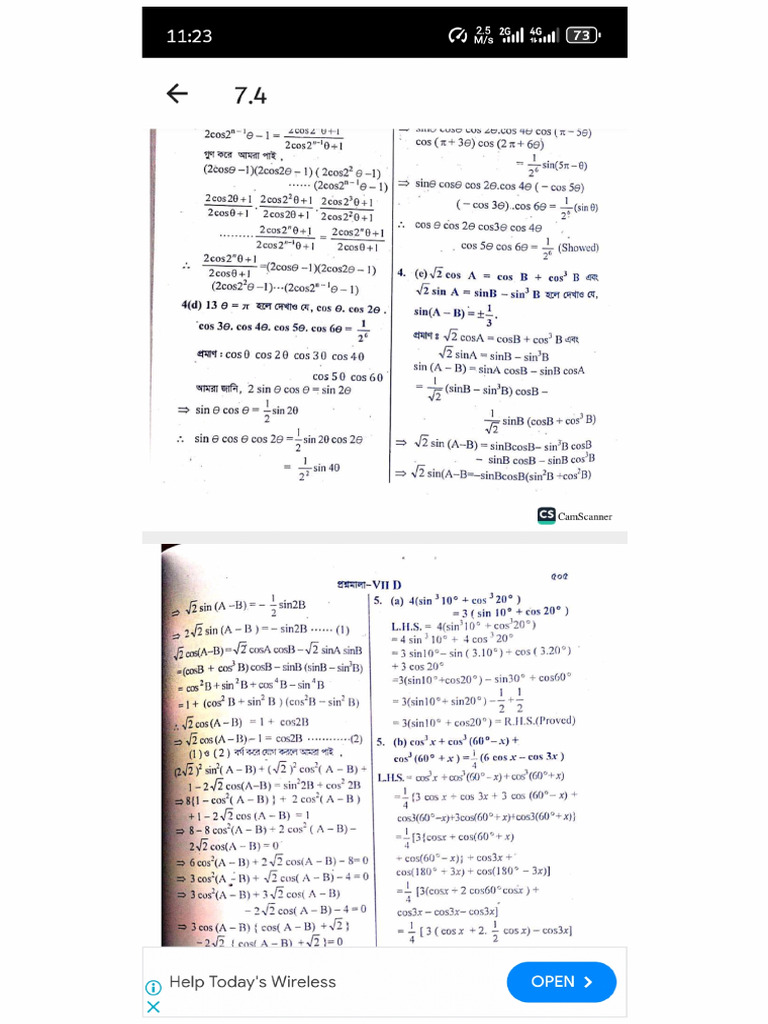 11:23
2.5 M/s 2G 4G 73
7.4
2cos2ⁿ⁻¹θ – 1 = (2cos2ⁿθ+1)/(2cos2ⁿ⁻¹θ+1)
গুণ করে আমরা পাই ,
(2cosθ –1)(2cos2θ – 1) ( 2cos2² θ –1)
...... (2cos2ⁿ⁻¹θ – 1)
(2cos2θ+1)/(2cosθ+1) . (2cos2²θ+1)/(2cos2θ+1) . (2cos2³θ+1)/(2cos2²θ+1)
......... (2cos2ⁿθ+1)/(2cos2ⁿ⁻¹θ+1) = (2cos2ⁿθ+1)/(2cosθ+1)
∴ (2cos2ⁿθ+1)/(2cosθ+1) =(2cosθ –1)(2cos2θ – 1)
(2cos2²θ –1)···(2cos2ⁿ⁻¹θ – 1)
4(d) 13 θ = π হলে দেখাও যে, cos θ. cos 2θ .
cos 3θ. cos 4θ. cos 5θ. cos 6θ = 1/2⁶
প্রমাণ : cos θ cos 2θ cos 3θ cos 4θ
cos 5θ cos 6θ
আমরা জানি, 2 sin θ cos θ = sin 2θ
⇒ sin θ cos θ = 1/2 sin 2θ
∴ sin θ cos θ cos 2θ = 1/2 sin 2θ cos 2θ
= 1/2² sin 4θ
⇒ sinθ cosθ cos 2θ.cos 4θ cos ( π – 5θ)
cos ( π + 3θ) cos (2π + 6θ)
= 1/2⁶ sin(5π – θ)
⇒ sinθ cosθ cos 2θ.cos 4θ ( – cos 5θ)
( – cos 3θ) .cos 6θ = 1/2⁶ (sin θ)
∴ cos θ cos 2θ cos3θ cos 4θ
cos 5θ cos 6θ = 1/2⁶ (Showed)
4. (e) √2 cos A = cos B + cos³ B এবং
√2 sin A = sinB – sin³ B হলে দেখাও যে,
sin(A – B) = ± 1/3.
প্রমাণ : √2 cosA = cosB + cos³ B এবং
√2 sinA = sinB – sin³B
sin (A – B) = sinA cosB – sinB cosA
= 1/√2 (sinB – sin³B) cosB –
1/√2 sinB (cosB + cos³ B)
⇒ √2 sin (A–B) = sinBcosB– sin³B cosB
– sinB cosB – sinB cos³B
⇒ √2 sin(A–B=–sinBcosB(sin²B +cos²B)
CS CamScanner
প্রশ্নমালা–VII D
৫০৫
⇒ √2 sin (A –B) = – 1/2 sin2B
⇒ 2√2 sin (A – B ) = – sin2B ...... (1)
√2 cos(A–B)=√2 cosA cosB–√2 sinA sinB
=(cosB + cos³ B) cosB – sinB (sinB – sin³B)
= cos²B + sin²B + cos⁴B – sin⁴B
=1 + (cos² B + sin² B ) (cos²B – sin² B)
∴ √2 cos (A – B) = 1 + cos2B
⇒ √2 cos (A – B) – 1 = cos2B ............(2)
(1) ও (2) বর্গ করে যোগ করলে আমরা পাই ,
(2√2)² sin²( A – B) + (√2 )² cos²( A – B) +
1 – 2√2 cos(A–B) = sin²2B + cos² 2B
⇒8{1 – cos²( A – B) } + 2 cos²( A – B )
+ 1 – 2√2 cos (A – B) = 1
⇒ 8 – 8 cos²(A – B) + 2 cos² ( A – B) –
2√2 cos(A – B) = 0
⇒ 6 cos²(A – B) + 2√2 cos(A – B) – 8= 0
⇒ 3 cos²(A – B) + √2 cos( A – B) – 4 = 0
⇒ 3 cos²(A – B) + 3√2 cos( A – B)
– 2√2 cos( A – B) – 4 = 0
⇒ 3 cos (A – B) { cos( A – B) + √2 }
– 2√2 { cos( A – B) + √2 }= 0
5. (a) 4(sin ³10° + cos ³20° )
= 3 ( sin 10° + cos 20° )
L.H.S. = 4(sin³10° + cos³20°)
= 4 sin ³10° + 4 cos ³20°
= 3 sin10° – sin ( 3.10°) + cos ( 3.20°)
+ 3 cos 20°
=3(sin10°+cos20°) – sin30° + cos60°
= 3(sin10° + sin20°) – 1/2 + 1/2
= 3(sin10° + cos20°) = R.H.S.(Proved)
5. (b) cos³ x + cos³ (60° – x) +
cos³ (60° + x ) = 1/4 (6 cos x – cos 3x )
L.H.S. = cos³x + cos³(60° – x) + cos³(60°+x)
= 1/4 {3 cos x + cos 3x + 3 cos (60° – x) +
cos3(60°–x)+3cos(60°+x)+cos3(60°+x)}
= 1/4 [3{cosx + cos(60° + x)
+ cos(60° – x)} + cos3x +
cos(180° + 3x) + cos(180° – 3x)]
= 1/4 [3(cosx + 2 cos60°cosx ) +
cos3x – cos3x– cos3x]
= 1/4 [ 3 ( cos x + 2. 1/2 cos x) – cos3x]
Help Today's Wireless
OPEN